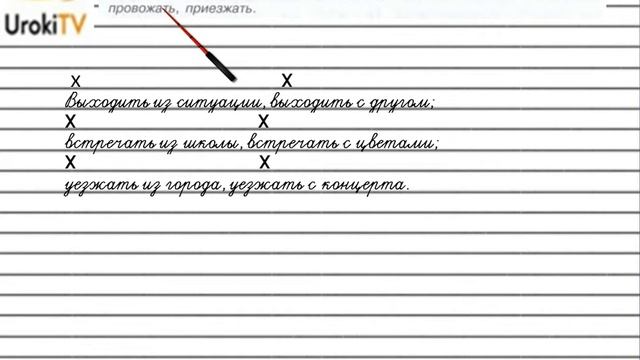 UrokiTV
провожать, приезжать.
х х
Выходить из ситуации, выходить с другом;
х х
встречать из школы, встречать с цветами;
х х
уезжать из города, уезжать с концерта.